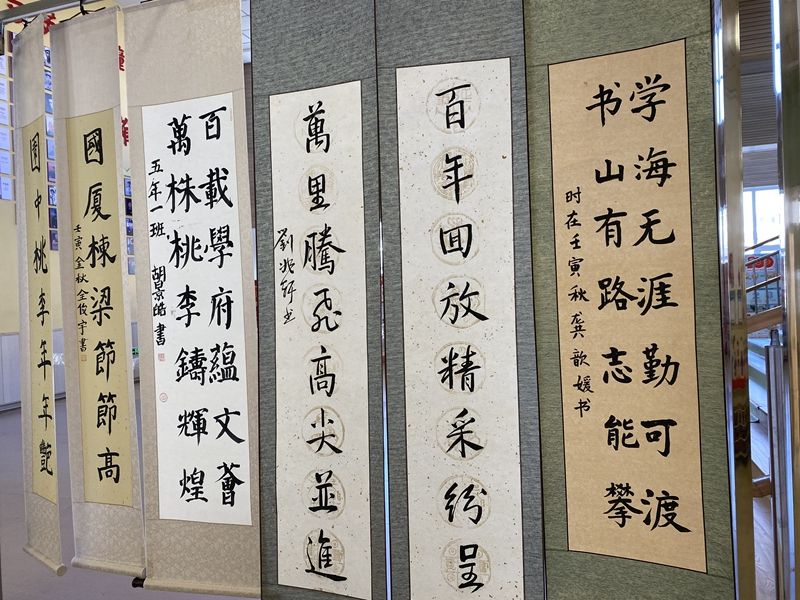 学海无涯勤可渡
书山有路志能攀
时在壬寅秋龚歆媛书
百年囬放精采纷呈
萬里騰飛高尖並進
劉兆轩书
百載學府蘊文薈
萬株桃李鑄輝煌
五年一班 胡景皓 書
國厦棟梁節節高
壬寅金秋全俊宇書
園中桃李年年艷